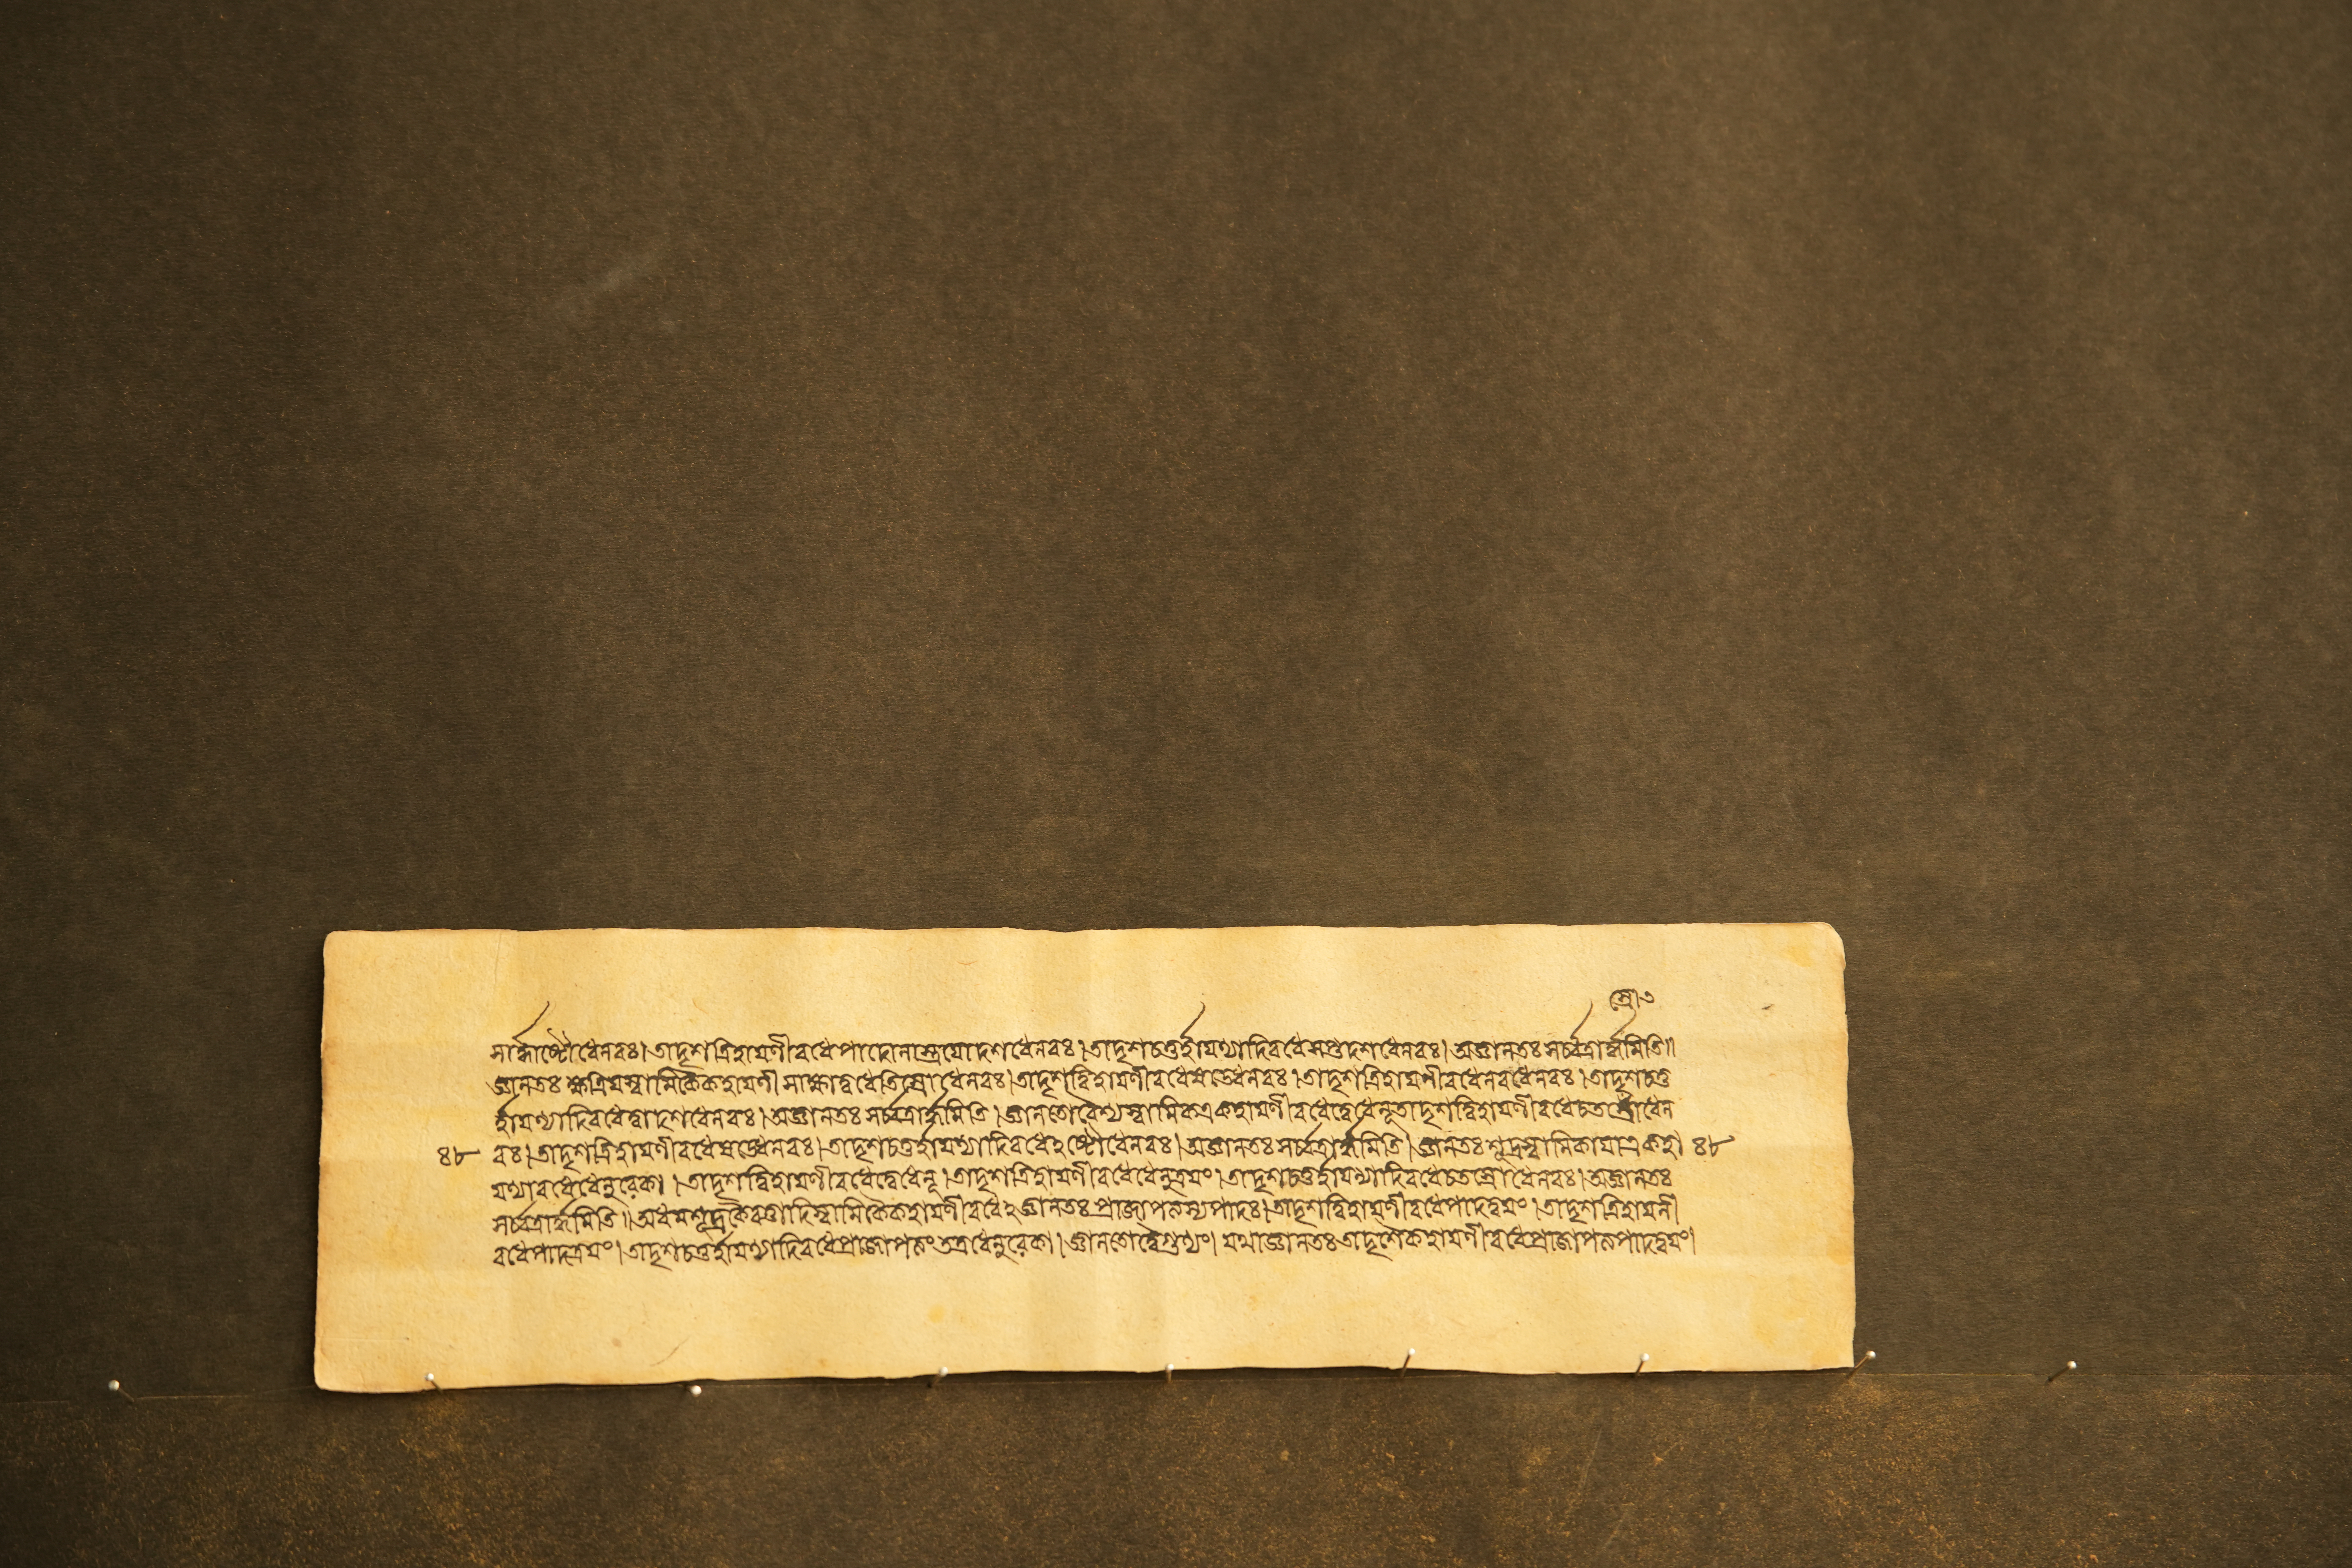 স্রৌ৩
সার্দ্ধাষ্টৌধেনবঃ।তাদৃশত্রিহায়ণীবধেপাদোনাস্ত্রয়োদশধেনবঃ।তাদৃশচতুর্হায়ণ্যাদিবধেসপ্তদশধেনবঃ।অজ্ঞানতঃসর্ব্বত্রার্দ্ধমিতি॥
জ্ঞানতঃক্ষত্রিয়স্বামিকৈকহায়ণী সাক্ষাদ্বধেতিস্রোধেনবঃ।তাদৃশদ্বিহায়ণীবধেষড্ধেনবঃ।তাদৃশত্রিহায়ণীবধেনবধেনবঃ।তাদৃশচতু
র্হায়ণ্যাদিবধেদ্বাদশধেনবঃ।অজ্ঞানতঃসর্ব্বত্রার্দ্ধমিতি।জ্ঞানতোবৈশ্যস্বামিকএকহায়ণীবধেদ্বেধেনূতাদৃশদ্বিহায়ণীবধেচতস্রোধেন
৪৮ বঃ।তাদৃশত্রিহায়ণীবধেষড্ধেনবঃ।তাদৃশচতুর্হায়ণ্যাদিবধেঽষ্টৌধেনবঃ।অজ্ঞানতঃসর্ব্বত্রার্দ্ধমিতি।জ্ঞানতঃশূদ্রস্বামিকায়াএকহা ৪৮
য়ণ্যাবধেধেনুরেকা।তাদৃশদ্বিহায়ণীবধেদ্বেধেনূ।তাদৃশত্রিহায়ণীবধেধেনুত্রয়ং।তাদৃশচতুর্হায়ণ্যাদিবধেচতস্রোধেনবঃ।অজ্ঞানতঃ
সর্ব্বত্রার্দ্ধমিতি॥অধমশূদ্রকৈবর্ত্তাদিস্বামিকৈকহায়ণীবধেঽজ্ঞানতঃপ্রাজাপত্যস্যপাদঃ।তাদৃশদ্বিহায়ণীবধেপাদদ্বয়ং।তাদৃশত্রিহায়নী
বধেপাদত্রয়ং।তাদৃশচতুর্হায়ণ্যাদিবধেপ্রাজাপত্যংতত্রধেনুরেকা।জ্ঞানতোদ্বৈগুণ্যং।যথাজ্ঞানতঃতাদৃশৈকহায়ণীবধেপ্রাজাপত্যপাদদ্বয়ং।